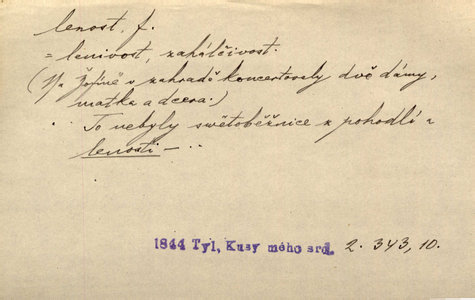 lenost, f.
= lenivost, zahálčivost.
(Na Žofíně v zahradě koncertovaly dvě dámy,
matka a dcera.)
To nebyly světoběžnice z pohodlí a
lenosti – ..
1844 Tyl, Kusy mého srd. 2. 343, 10.